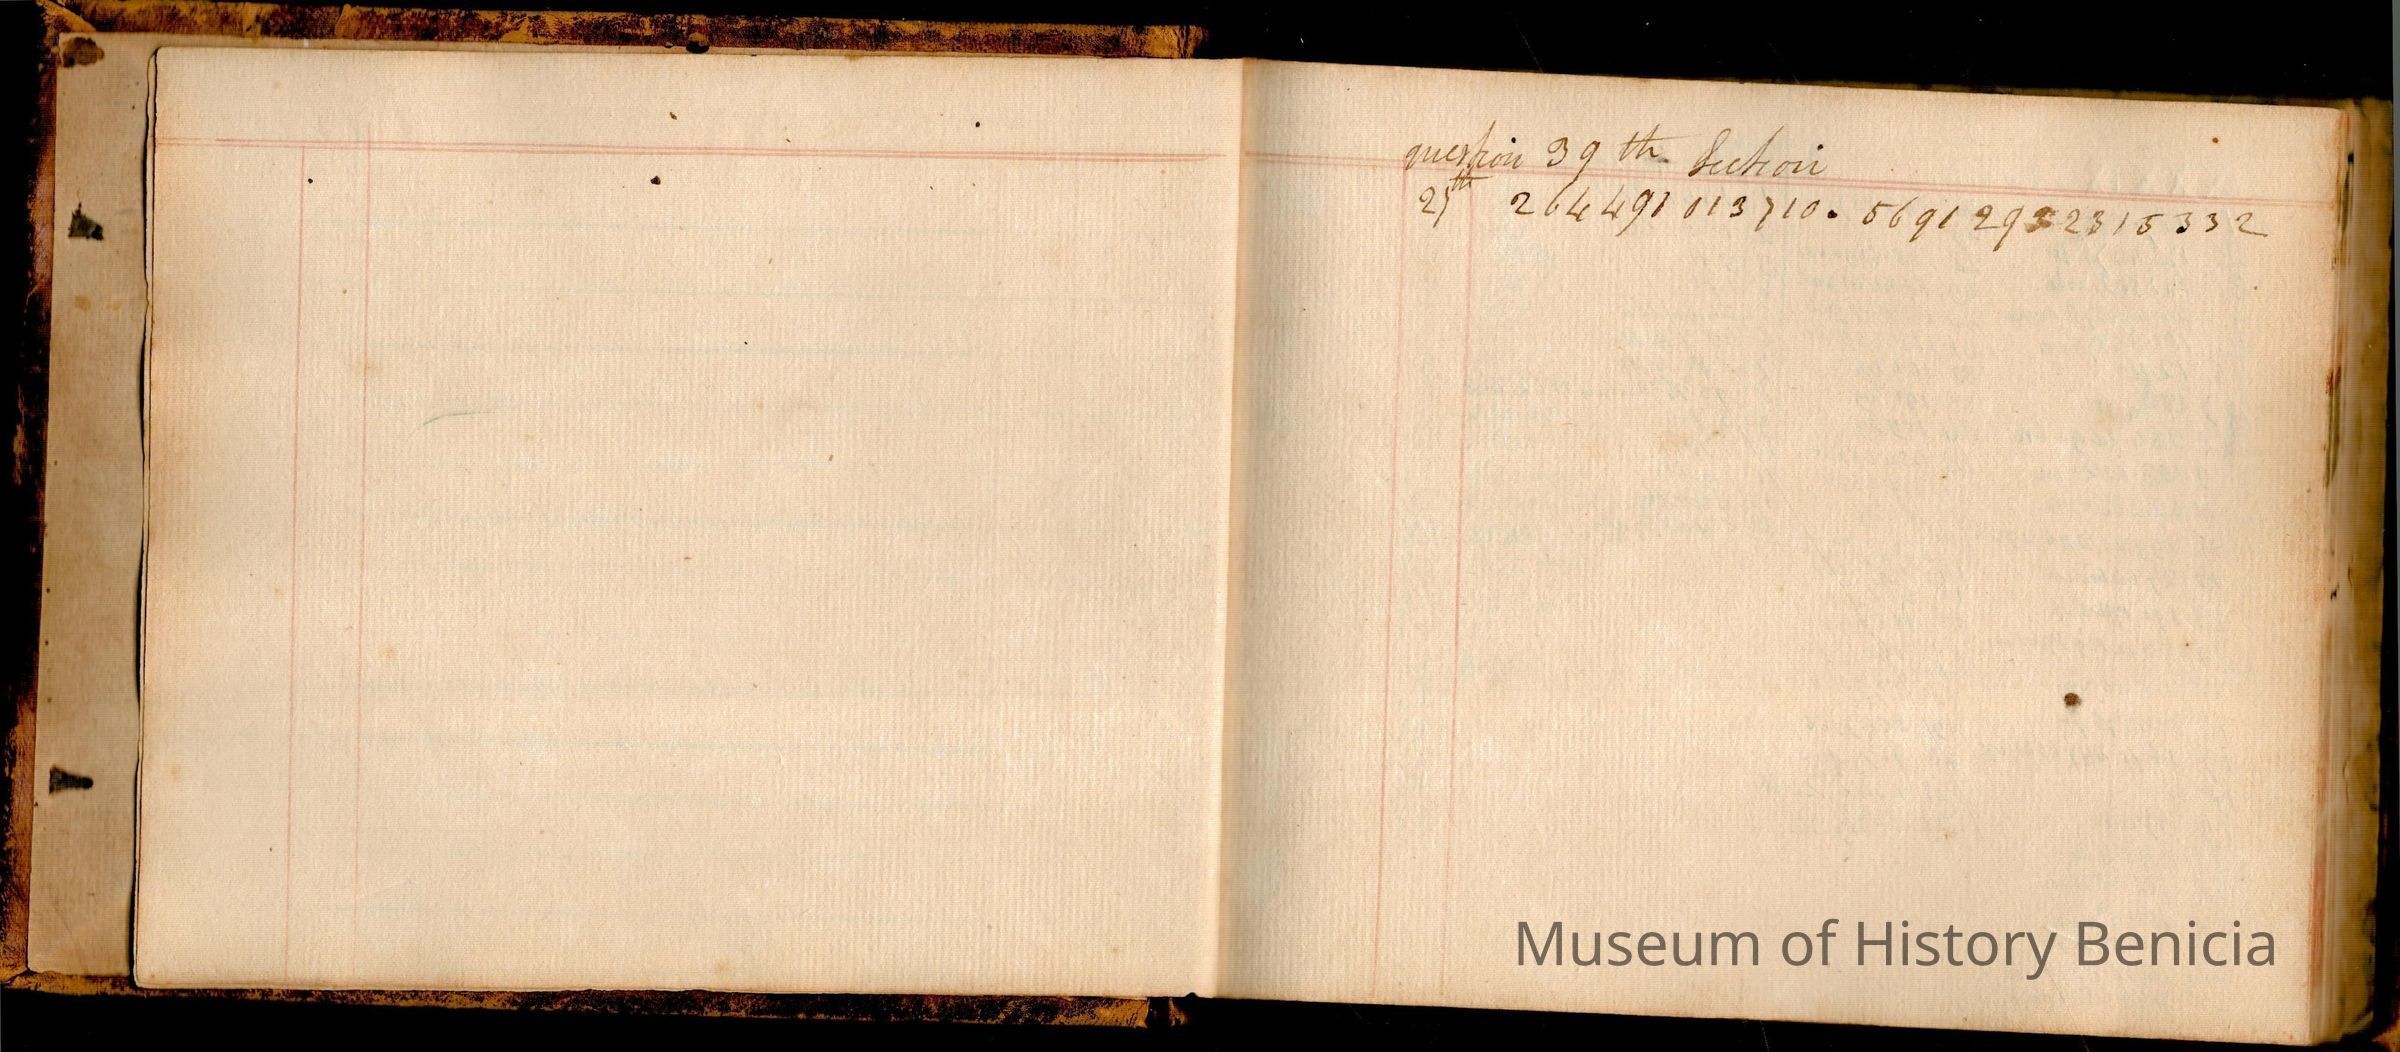 question 39 th Section
27th 264491013710. 569129 2315332
Museum of History Benicia